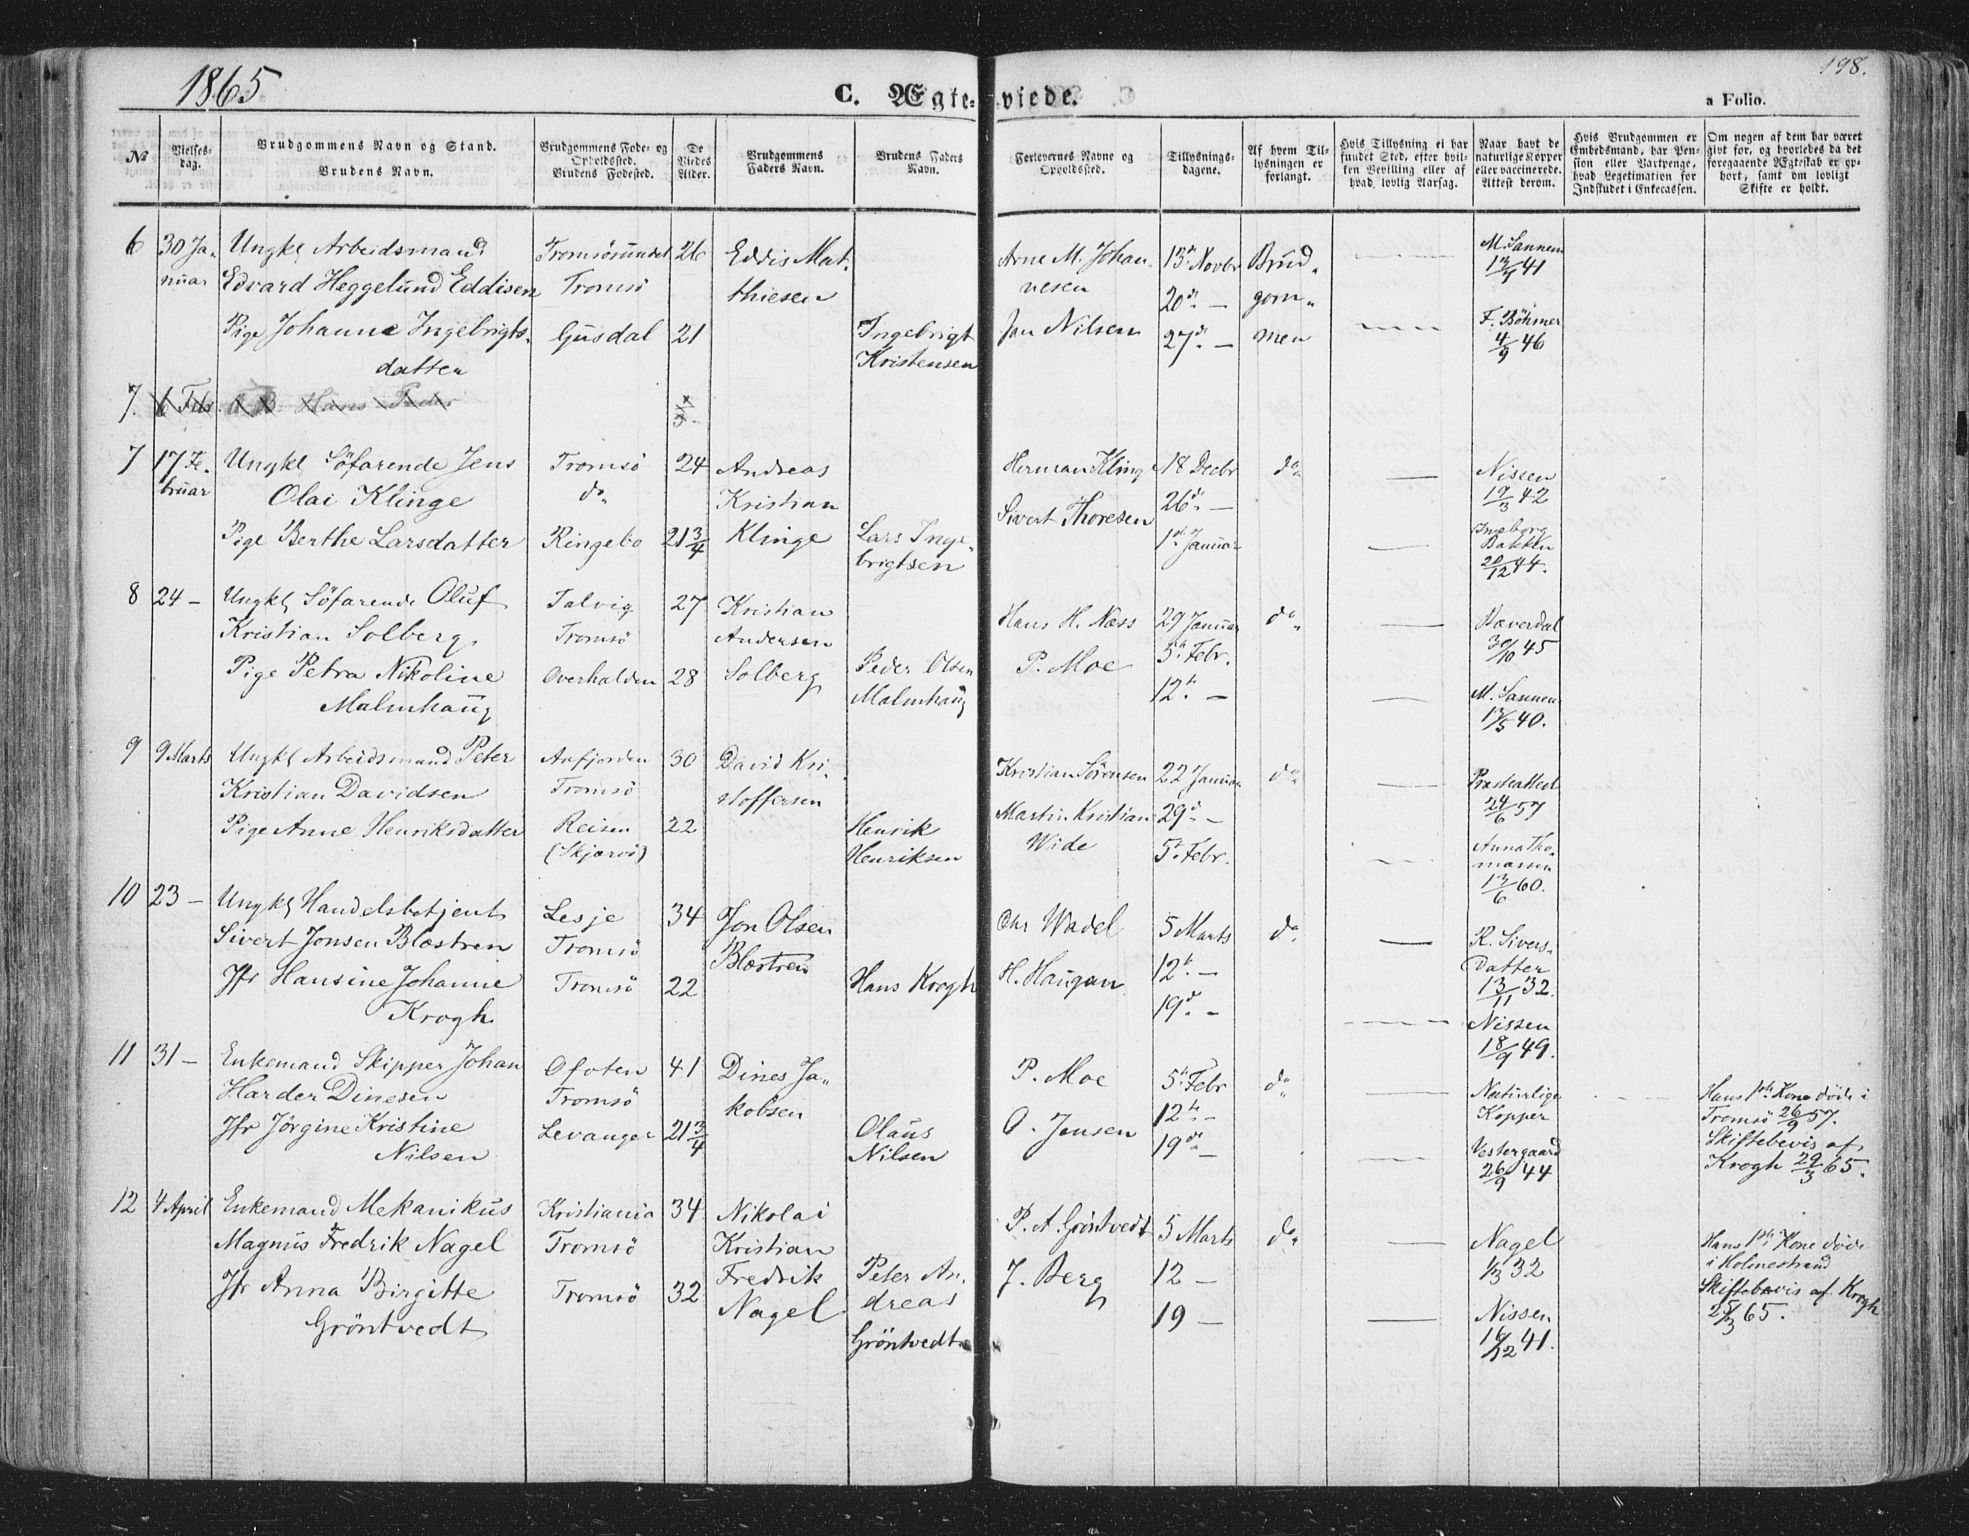 1865
C. Ægte-viede.
198.
a Folio.
No
Vielses-dag.
Brudgommens Navn og Stand.
Brudens Navn.
Brudgommens Føde- og Opholdssted.
Brudens Fødested.
De Viedes Alder.
Brudgommens Faders Navn.
Brudens Faders Navn.
Forlovernes Navne og Opholdssted.
Tillysnings-dagene.
Af hvem Til-lysningen er forlangt.
Hvis Tillysning ei har fundet Sted, efter hvil-ken Bevilling eller af hvad lovlig Aarsag.
Naar havt de naturlige Kopper eller vaccinerede. Attest derom.
Hvis Brudgommen er Embedsmand, har Pen-sion eller Vartpenge, hvad Legetimation for Indskudet i Enkecassen.
Om nogen af dem har været givt før, og hvorledes da det foregaaende Ægteskab er op-hørt, samt om lovligt Skifte er holdt.
6 30 Ja-nuar
Ungkl Arbeidsmand
Edvard Heggelund Eddisen
Pige Johanne Ingebrigts-
datter
Tromsösundet
Tromsö
Gusdal
26
21
Eddis Mat-
thiesen
Ingebrigt
Kristensen
Arne M. Johan-
nesen
Jan Nilsen
13de Novbr
20de —
27de —
Brud-
gom-
men
M. Sannem
13/9 41
F. Böhmer
4/9 46
7. 6 Feb. Hans Peder
7 17 Fe-
bruar
Ungkl Söfarende Jens
Olai Klinge
Pige Berthe Larsdatter
Tromsö
do
Ringebo
24
21 3/4
Andreas
Kristian
Klinge
Lars Inge-
brigtsen
Herman Kling
Sivert Thoresen
18 Decbr
26de —
1ste Januar
do
Nissen
19/3 42
Ingeborg
Bakken
20/12 44.
8 24 —
Ungkl Söfarende Oluf
Kristian Solberg
Pige Petra Nikoline
Malmhaug
Talvig
Tromsö
Overhalden
27
28
Kristian
Andersen
Solberg
Peder Olsen
Malmhaug
Hans H. Næss
P. Moe
29 Januar
5te Febr.
12te —
do
Haverdal
30/10 45
M. Sannem
17/5 40.
9 9 Marts
Ungkl Arbeidsmand Peter
Kristian Davidsen
Pige Anne Henriksdatter
Aafjorden
Tromsö
Reisen
(Skjærvö)
30
22
David Kri-
stoffersen
Henrik
Henriksen
Kristian Sörensen
Martin Kristian
Wide
22 Januar
29de —
5te Febr.
do
Præsteattest
24/6 57
Anna Tho-
massen
13/6 60.
10 23 —
Ungkl Handelsbetjent
Sivert Jonsen Blæstren
Jfr Hansine Johanne
Krogh
Lesje
Tromsö
Tromsö
34
22
Jon Olsen
Blæstren
Hans Krogh
Chr Wadel
H. Haugan
5 Marts
12te —
19de —
do
R. Sivers-
datter
13/11 32.
Nissen
18/9 49.
11 31 —
Enkemand Skipper Johan
Harder Dinesen
Jfr Jörgine Kristine
Nilsen
Ofoten
Tromsö
Levanger
41
21 3/4
Dines Ja-
kobsen
Olaus
Nilsen
P. Moe
O. Jensen
5te Febr
12te —
19de —
do
Naturlige
Kopper
Vestergaard
26/9 44
Hans 1ste Kone döde i
Tromsö 26/9 57.
Skiftebevis af
Krogh 29/3 65.
12 4 April
Enkemand Mekanikus
Magnus Fredrik Nagel
Jfr Anna Birgitte
Gröntvedt
Kristiania
Tromsö
Tromsö
34
32
Nikolai
Kristian
Fredrik
Nagel
Peter An-
dreas
Gröntvedt
P. A. Gröntvedt
J. Berg
5 Marts
12 —
19 —
do
Nagel
1/3 32
Nissen
16/12 41.
Hans 1ste Kone döde
i Holmestrand
Skiftebevis af Krogh
25/3 65.